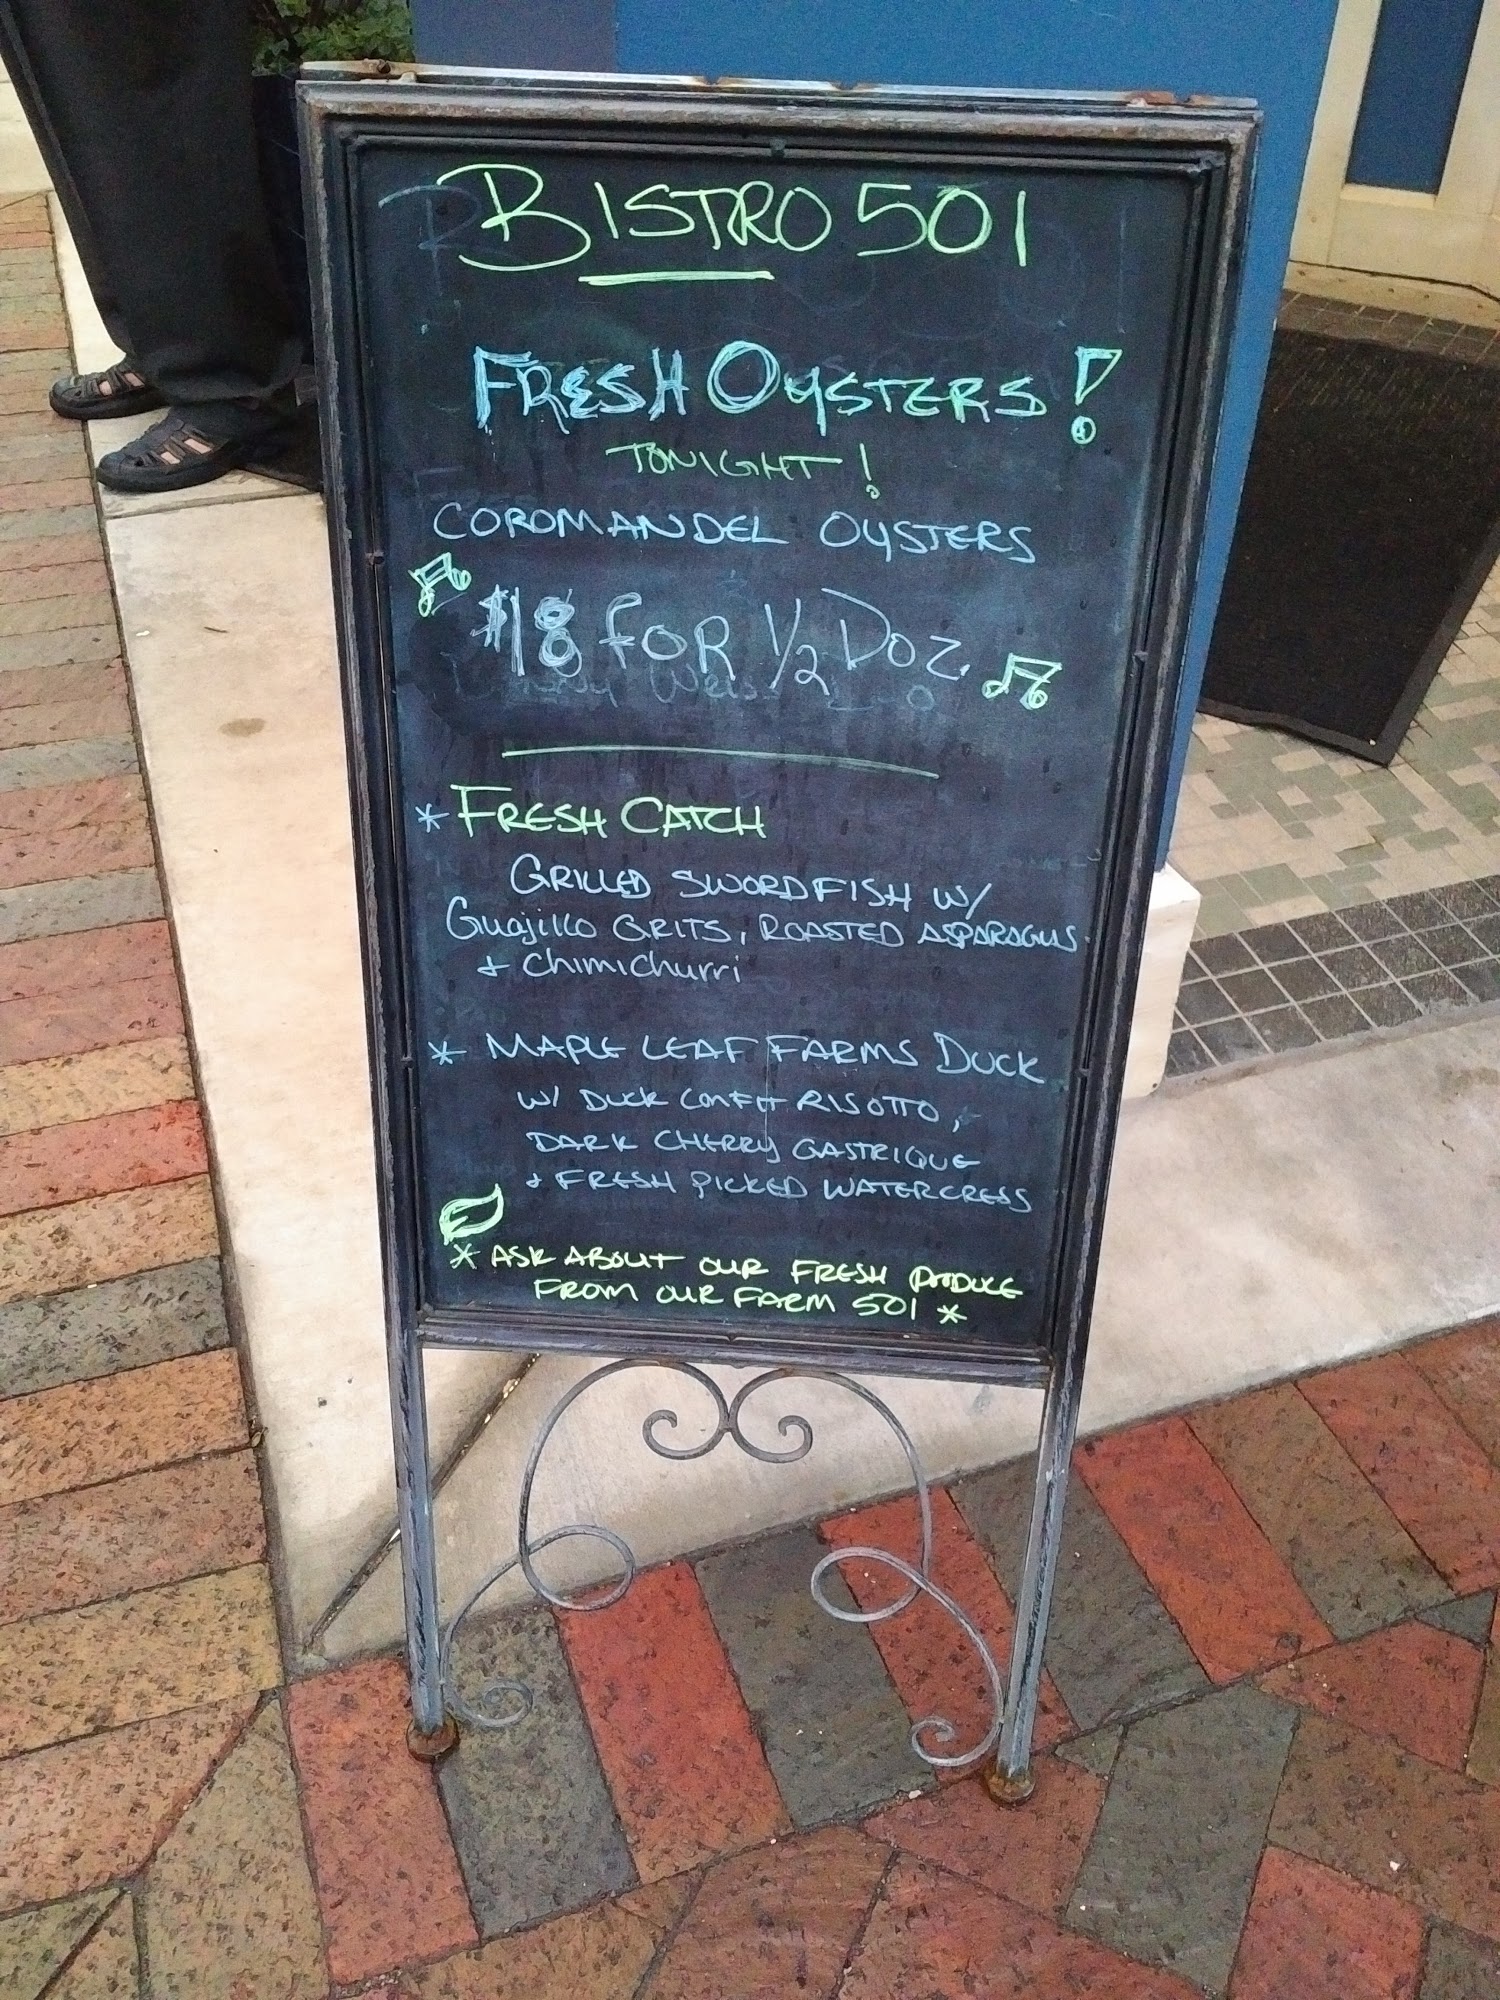 BISTRO 501
FRESH OYSTERS!
TONIGHT!
COROMANDEL OYSTERS
$18 FOR 1/2 DOZ.
* FRESH CATCH
GRILLED SWORDFISH W/
GUAJILLO GRITS, ROASTED ASPARAGUS
+ Chimichurri
* MAPLE LEAF FARMS DUCK
W/ DUCK CONFIT RISOTTO,
DARK CHERRY GASTRIQUE
+ FRESH PICKED WATERCRESS
* ASK ABOUT OUR FRESH PRODUCE
FROM OUR FARM 501 *